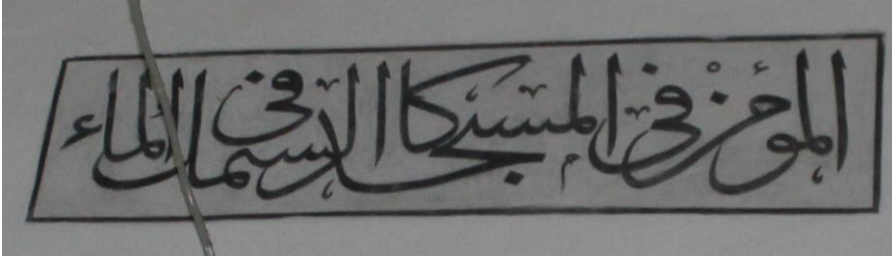 المؤمن في المسجد كالسمك في الماء